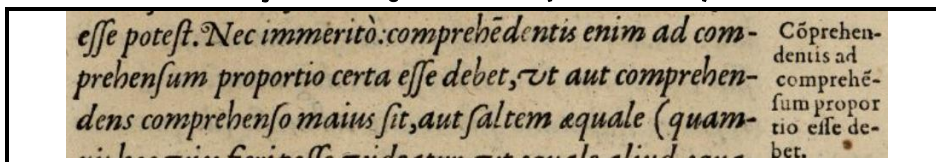 eſſe poteſt. Nec immeritò: comprehēdentis enim ad com-
prehenſum proportio certa eſſe debet, vt aut comprehen-
dens comprehenſo maius ſit, aut ſaltem æquale (quam-
Cōprehen-
dentis ad
comprehē-
ſum propor
tio eſſe de-
bet.